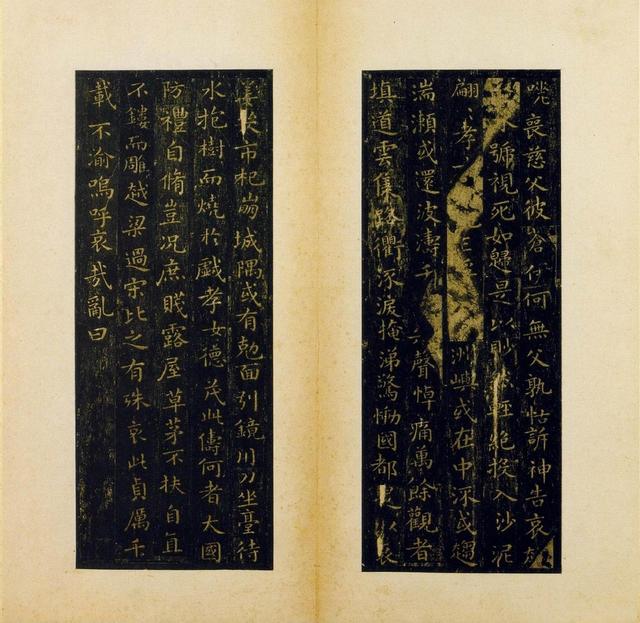 喪慈父彼蒼伊何無父孰怙訴神告哀
號視死如歸是以眇輕絕投入沙泥
翩〻孝洲嶼或在中流或趨
湍瀨或還波濤千聲悼痛萬餘觀者
填道雲集路衢淚掩涕驚慟國都是以哀
姜哭市杞崩城隅或有剋面引鏡刀坐臺待
水抱樹而燒於戲孝女德茂此儔何者大國
防禮自脩豈況庶賤露屋草茅不扶自直
不鏤而雕越梁過宋比之有殊哀此貞厲千
載不渝嗚呼哀哉亂曰